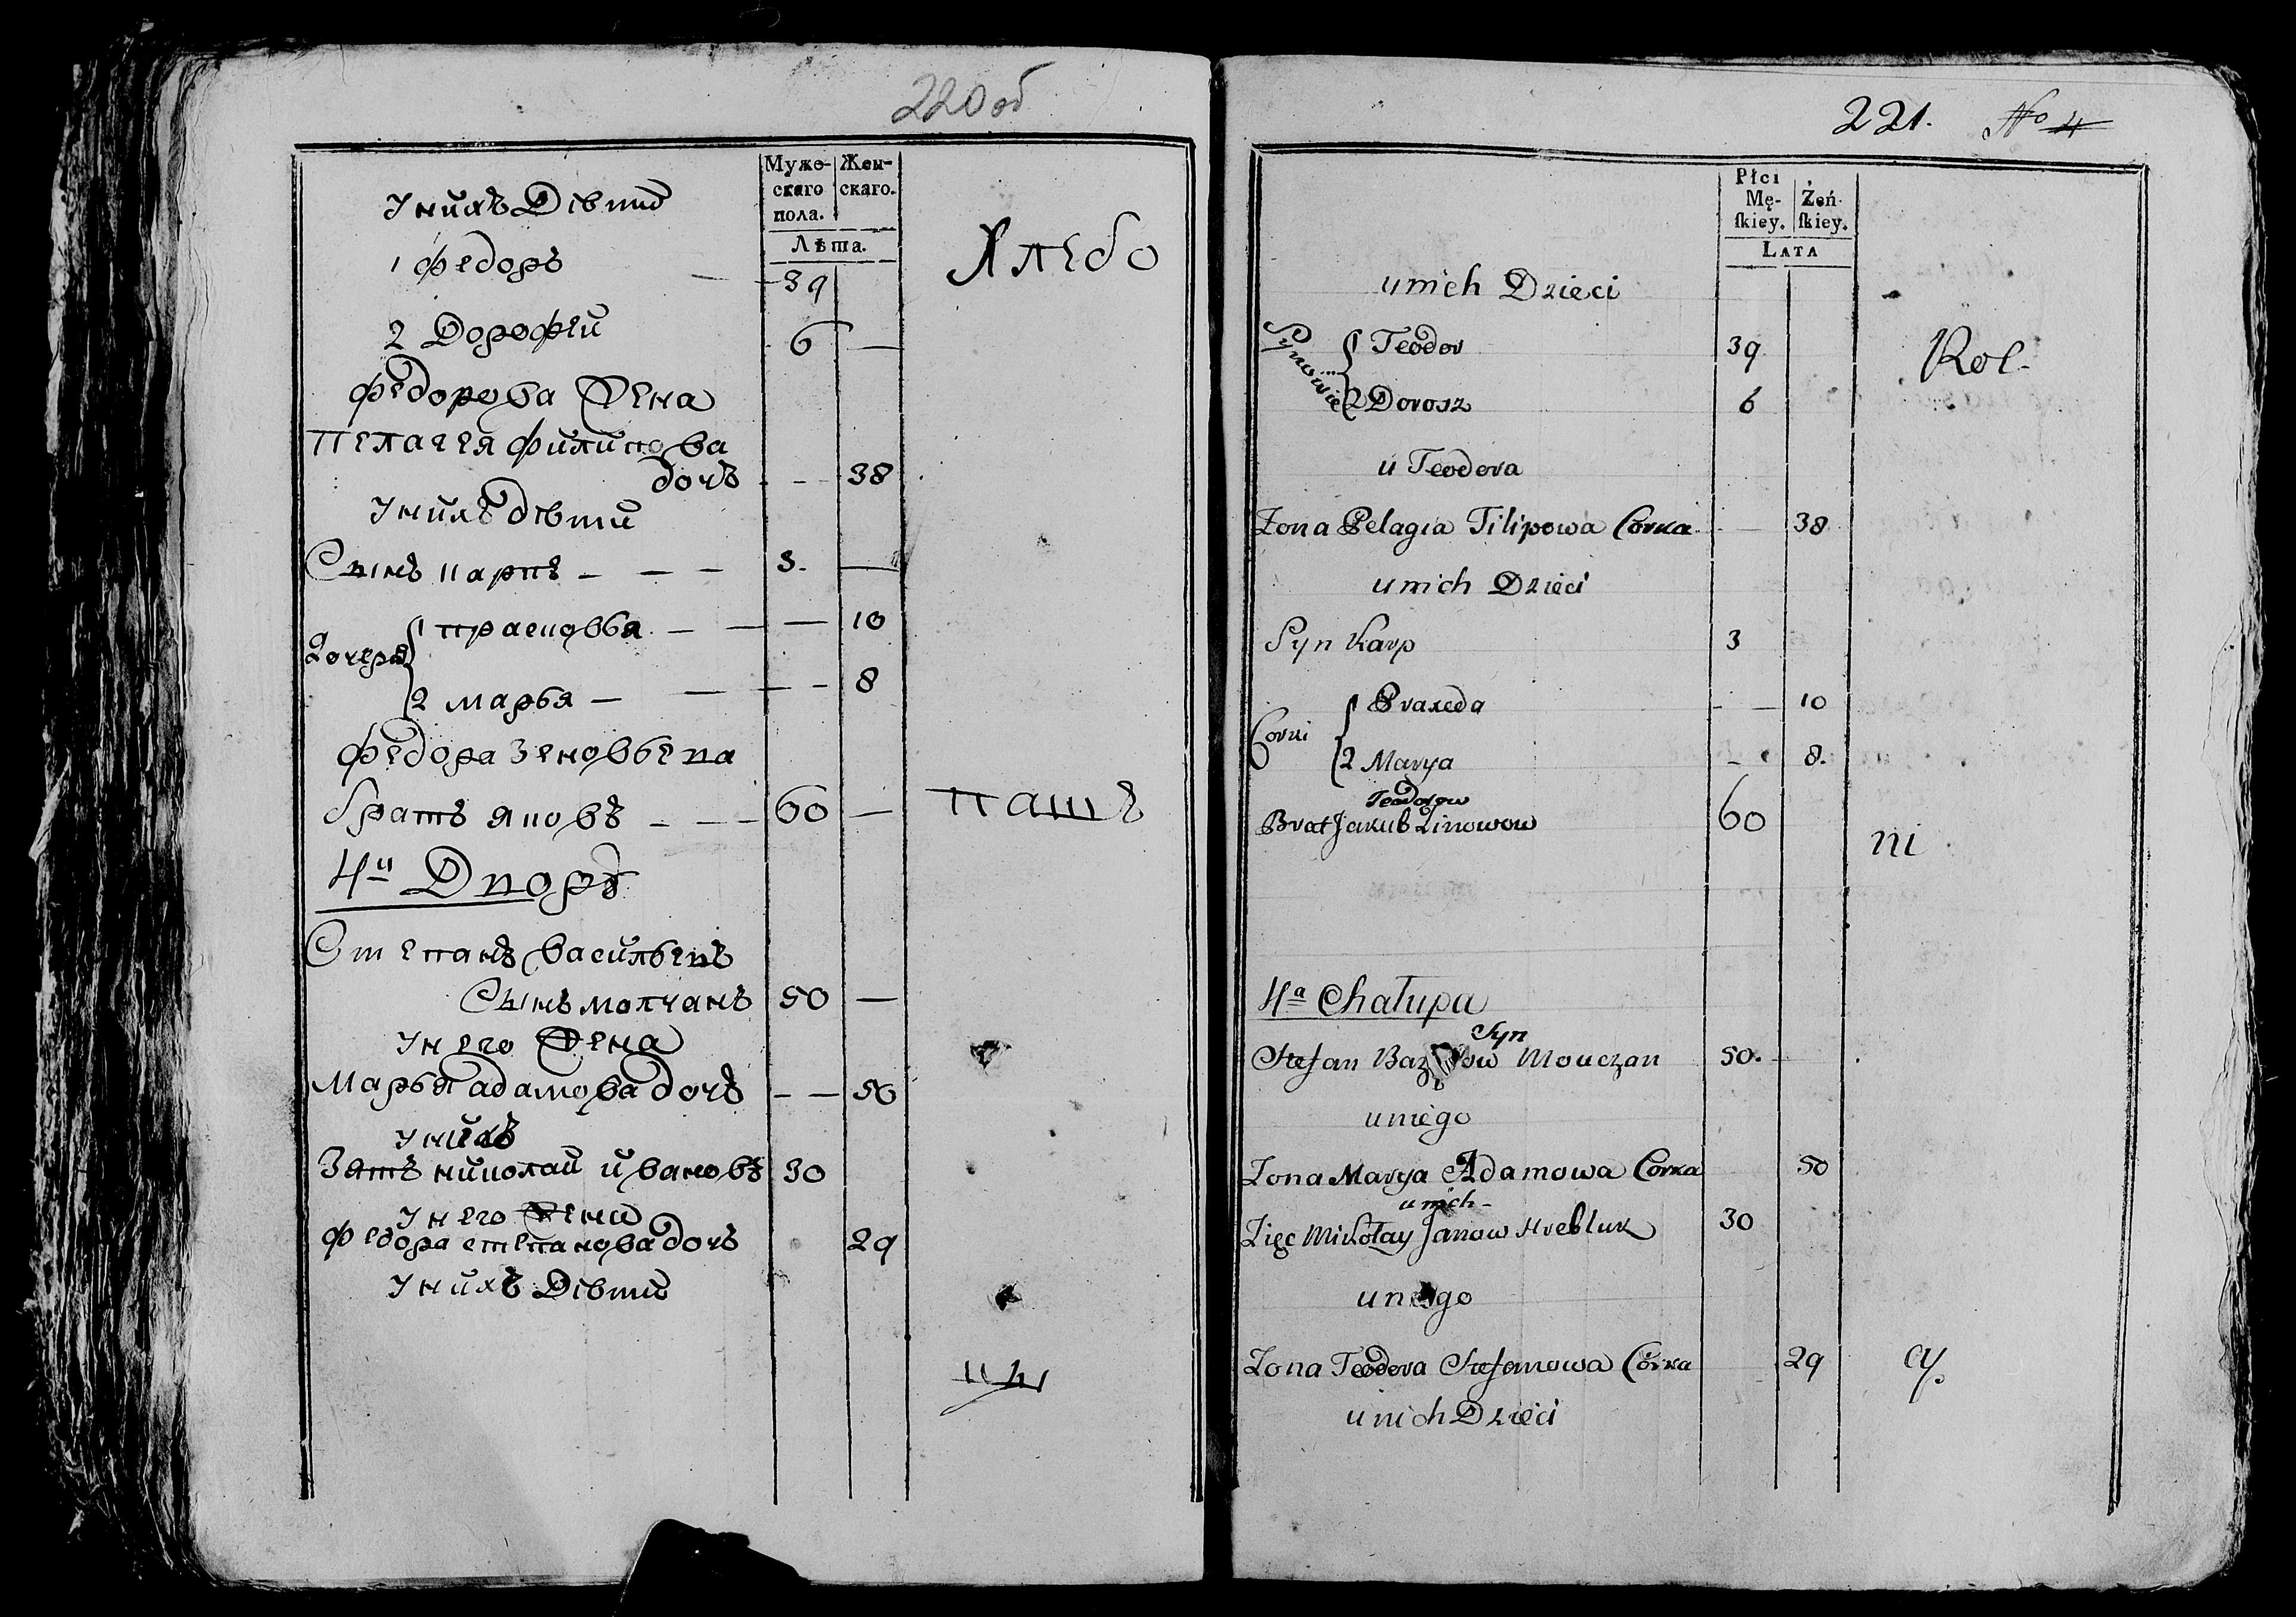 220 об
Мужескаго пола. Женскаго.
Лѣта.
У нихъ Дѣти
1 Федоръ — 39
Хлебо
2 Дорофей 6 —
Федорова Жена
Пелагея Филипова
дочь - - 38
У нихъ дѣти
Сынъ Карпъ - — — 3. —
Дочери 1 Прасковья. — — — 10
2 Марья — — — - 8
Федора Зеновьева
братъ Яковъ - - — 60 —
пашъ
4й Дворъ
Степанъ Васильевъ
Сынъ Молчанъ 50 —
У него Жена
Марья Адамова дочь - — 50
У нихъ
Зять Николай Ивановъ 30
У него Жена
Федора Степанова дочь 29
У нихъ Дѣти
цы
221. No 4
Płci Męſkiey. Żeńſkiey.
LATA
u nich Dzieci
Synowie 1 Teodor 39
Rol-
2 Dorosz 6
u Teodora
Zona Pelagia Filipowa Corka - — 38
u nich Dzieci
Syn Karp 3
Corki 1 Praxeda - — 10
2 Marya - 8.
Teodorow
Brat Jakub Zinowow 60
ni
4a Chałupa
Syn
Stefan Baz ow Mouczan 50.
u niego
Zona Marya Adamowa Corka 50
u nich -
Zięc Mikołay Janow Hrebluk 30
u niego
Zona Teodora Stefanowa Córka 29
cy.
u nich Dzieci